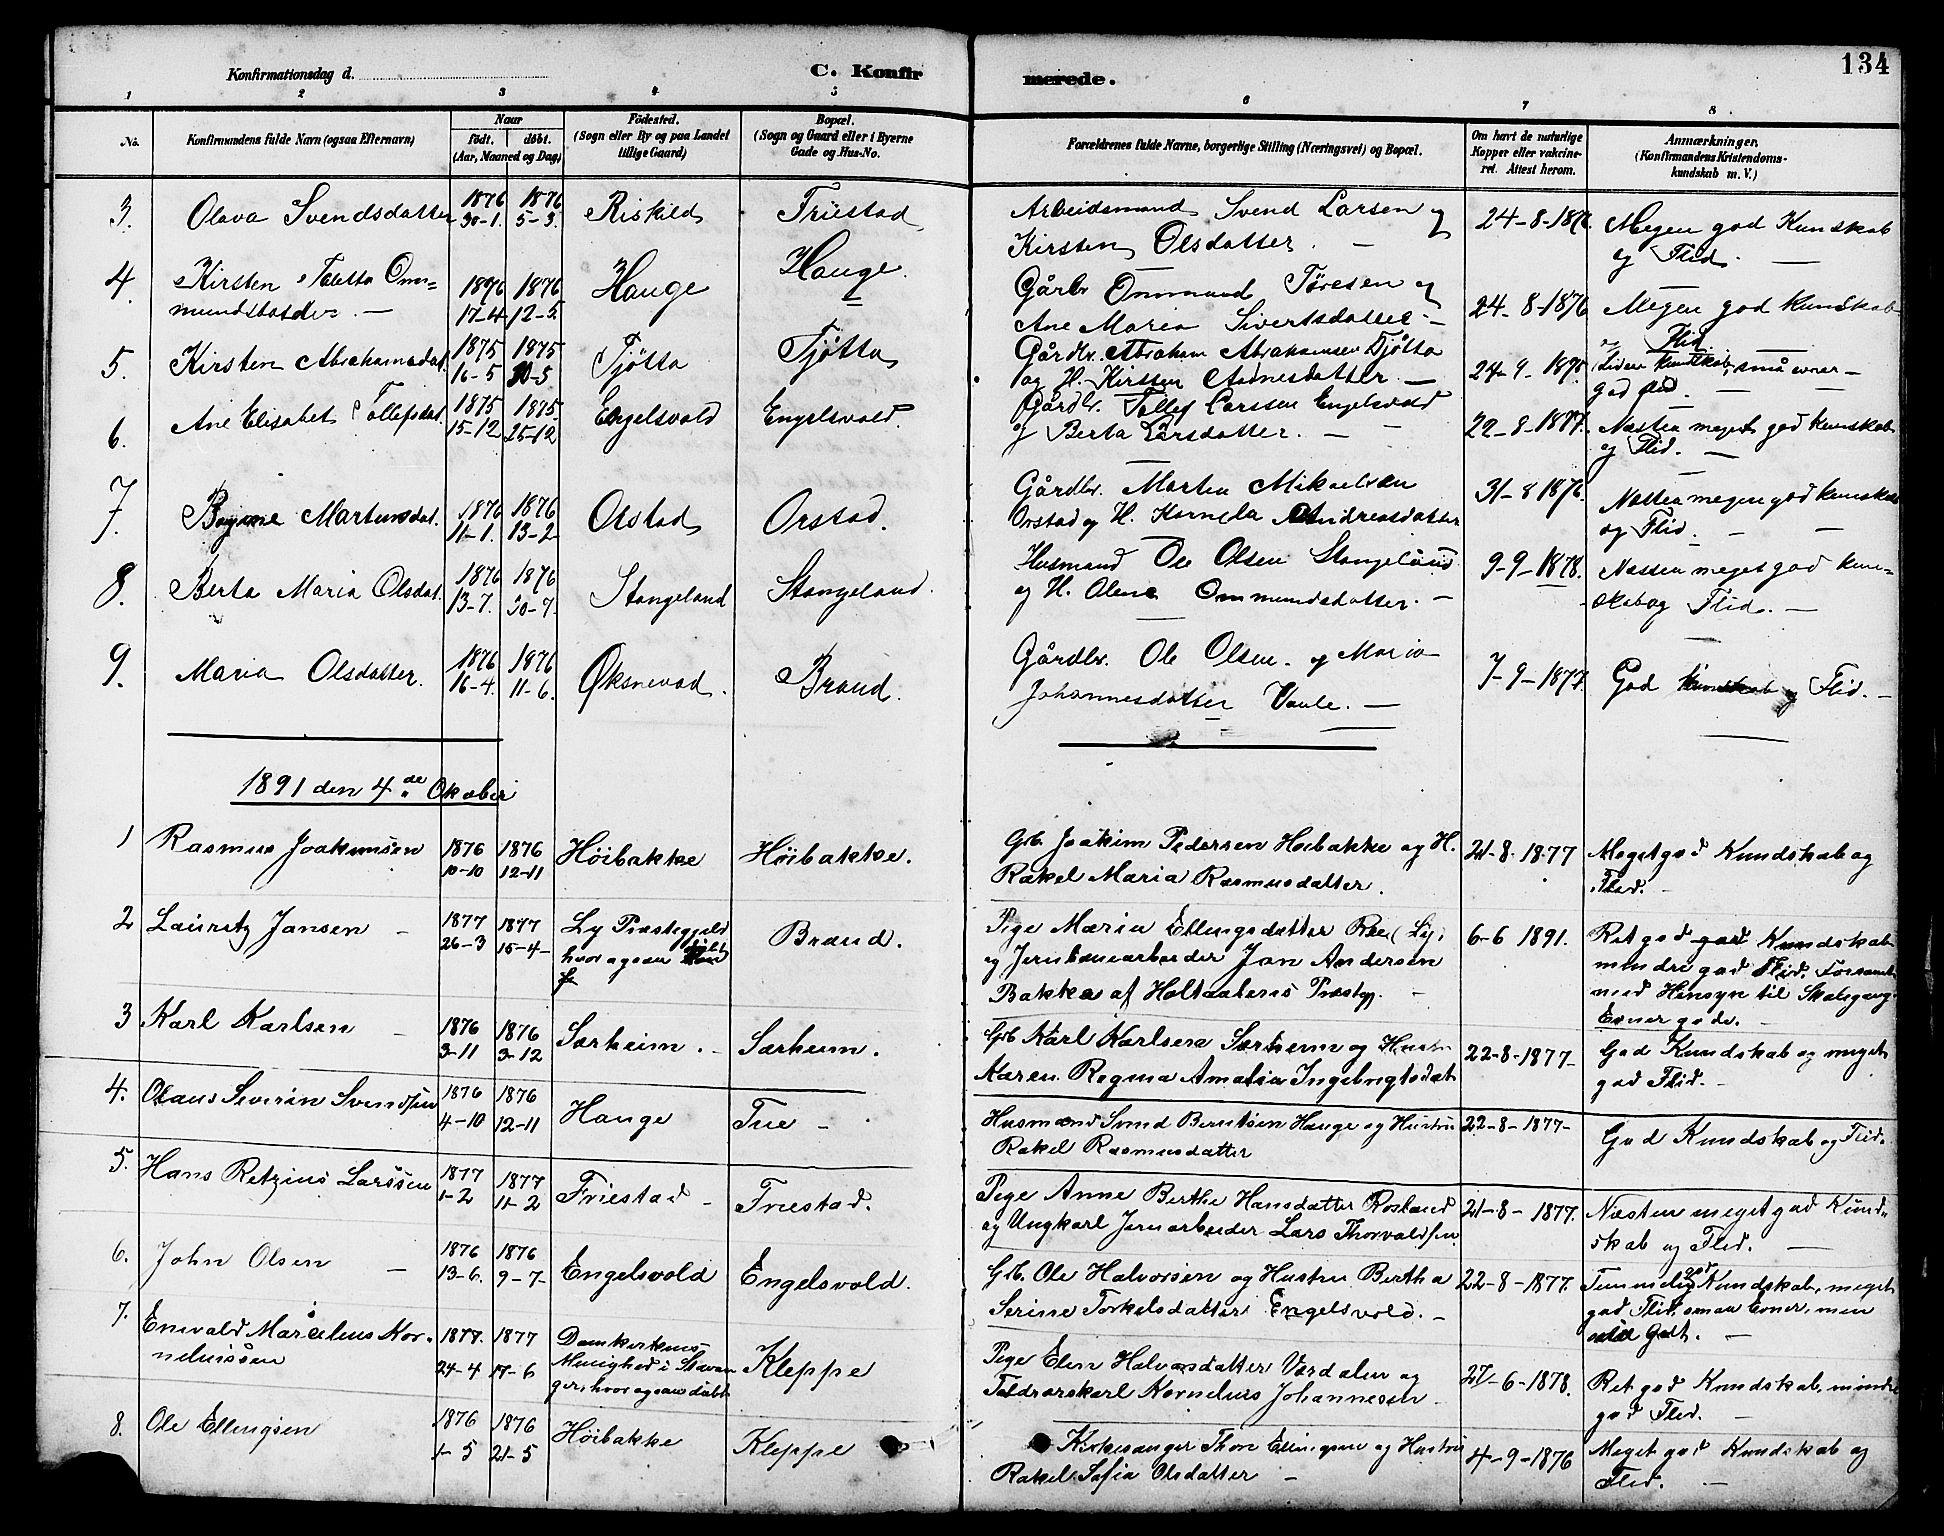 134
Konfirmationsdag d.
C. Konfirmerede.
1 2 3 4 5 6 7 8
No.
Konfirmandens fulde Navn (ogsaa Efternavn)
Naar
födt. döbt.
(Aar, Maaned og Dag)
Födested.
(Sogn eller By og paa Landet
tillige Gaard)
Bopæl.
(Sogn og Gaard eller i Byerne
Gade og Hus-No.
Forældrenes fulde Navne, borgerlige Stilling (Næringsvei) og Bopæl.
Om havt de naturlige
Kopper eller vakcine-
ret. Attest herom.
Anmærkninger.
(Konfirmandens Kristendoms-
kundskab m. V.)
3. Olava Svendsdatter 1876 30-1. 1876 5-3. Riskild Friestad
Arbeidsmand Svend Larsen og
Kirsten Olsdatter. —
24-8-1876. Megen god Kunskab
og Flid. —
4. Kirsten Tabitta Om=
mundsdatter. — 1876 17-4 1876 12-5 Hauge Hauge.
Gårbr Ommund Töresen og
Ane Maria Sivertsdatter. —
24-8-1876 Megen god kunskab
og Flid.
5. Kirsten Abrahamsdat. 1875 16-5 1875 30-5 Tjötta Tjötta
Gårdbr. Abraham Abrahamsen Tjötta
og H. Kirsten Aadnesdatter —
24-9-1875. Liden kundskab, små evner —
god flid. —
6. Ane Elisabet Tollefsdat. 1875 15-12 1875. 25-12 Engelsvold Engelsvold.
Gårdbr. Tollef Larssen Engelsvold
og Berta Larsdatter. —
22-8-1877. Næsten meget god kunskab
og Flid. —
7. Martinsdat. 1876 11-1. 1876 13-2 Orstad Orstad.
Gårdbr. Martin Mikaelsen
Orstad og H. Kornela Andreasdatter
31-8 1876. Næsten megen god kunskab
og Flid. —
8. Berta Maria Olsdat. 1876 13-7. 1876 30-7 Stangeland Stangeland.
Husmand Ole Olsen Stangeland
og H. Olene Ommundsdatter. —
9-9-1878. Næsten meget god kun=
skab og Flid. —
9. Maria Olsdatter. 1876 16-4. 1876 11-6. Öksnevad. Braud.
Gårdbr. Ole Olsen. og Maria
Johannesdatter Vaule. —
7-9-1877. God kunskab og Flid. —
1891 den 4de Okober
1 Rasmus Joakimsen 1876 10-10 1876 12-11 Höibakke Höibakke.
Gb. Joakim Pedersen Höibakke og H.
Rakel Maria Rasmusdatter.
21-8-1877 Meget god Kundskab og
Flid. -
2 Lauritz Jansen - 1877 26-3 1877 15-4- Ly Præstegjeld
hvor ogsaa döbt Braud.
Pige Maria Ellingsdatter Ree (Ly)
og Jernbanearbeider Jan Andersen
Bakka af Holtaalens Præstgj. -
6-6 1891. Ret god Kundskab
mindre god Flid. Forsömt
med Hensyn til Skolegang.
Evner gode. -
3 Karl Karlsen - 1876 3-11 1876 3-12 Særheim. - Særheim.
Gb Karl Karlsen Særheim og Hustru
Karen Regina Amalia Ingebrigtsdat.
22-8-1877- God Kundskab og meget
god Flid. -
4. Olaus Severin Svendsen 1876 4-10 1876 12-11 Hauge Tue -
Husmand Svend Berntsen Hauge og Hustru
Rakel Rasmusdatter
22-8-1877- God Kundskab og Flid.
5. Hans Retzius Larssen 1877 1-2 1877 11-2 Friestad - Friestad.
Pige Anne Berthe Hansdatter Rosland
og Ungkarl Jernarbeider Lars Thorvaldsen
21-8-1877. Næsten meget god Kund=
skab og Flid. —
6. John Olsen - 1876 13-6. 1876 9-7- Engelsvold Engelsvold.
Gb. Ole Halvorsen og Hustru Bertha
Serine Torkelsdatter Engelsvold. -
22-8-1877. Temmelig god Kundskab, meget
god Flid, smaa Evner, men
Godt. -
7. Enevald Marselius Kor-
neliussen 1877. 24-4 1877 17-6 Domkirkens
Menighed i Stavan
ger, hvor ogsaa döbt Kleppe
Pige Elen Halvorsdatter Vardalen og
Korneluis Johannesen
27-6-1878. Ret god Kundskab, mindre
god Flid. -
8. Ole Ellingsen 1876 1-5 1876 21-5 Höibakke Kleppe
Kirkesanger Thore Ellingsen og Hustru
Rakel Sofia Olsdatter -
4-9-1876 Meget god Kundskab og
Flid. -